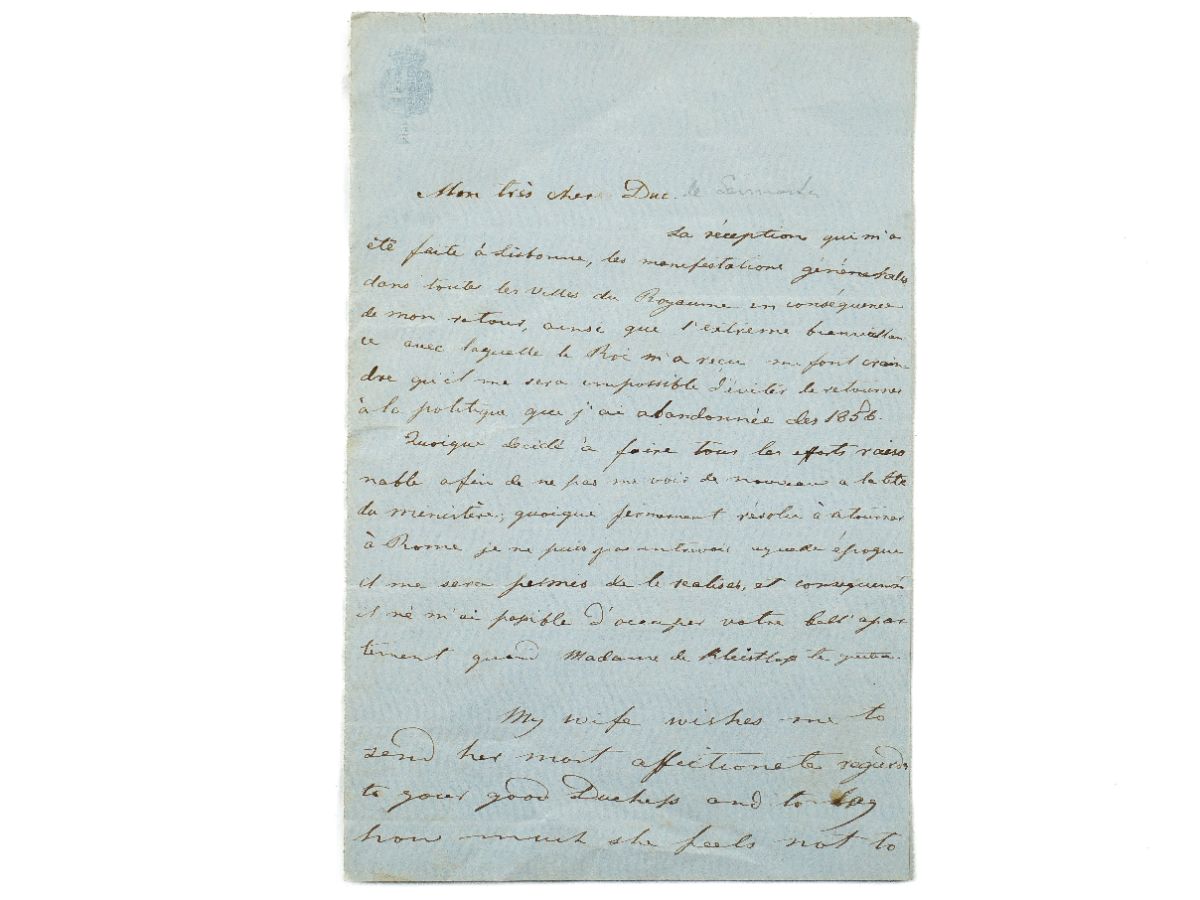 Mon très cher Duc. de Sermoneta
La réception qui m'a
été faite à Lisbonne, les manifestations générales
dans toutes les villes du Royaume en conséquence
de mon retour, ainsi que l'extreme bienveillan
ce avec laquelle le Roi m'a reçu me font crain
dre qu'il me sera impossible d'éviter de retourner
à la politique que j'ai abandonnée des 1856.
Quoique decidé à faire tous les efforts raiso
nable afin de ne pas me voir de nouveau a la tête
du ministère; quoique resolu à
à Rome je ne puis pas epoque
il me sera permis de le realiser, et
il ne m'ai possible d'occuper votre bell'apar
tement quand Madame de te
My wife wishes me to
send her most affectionete regards
to your good Duchess and to say
how much she feels not to